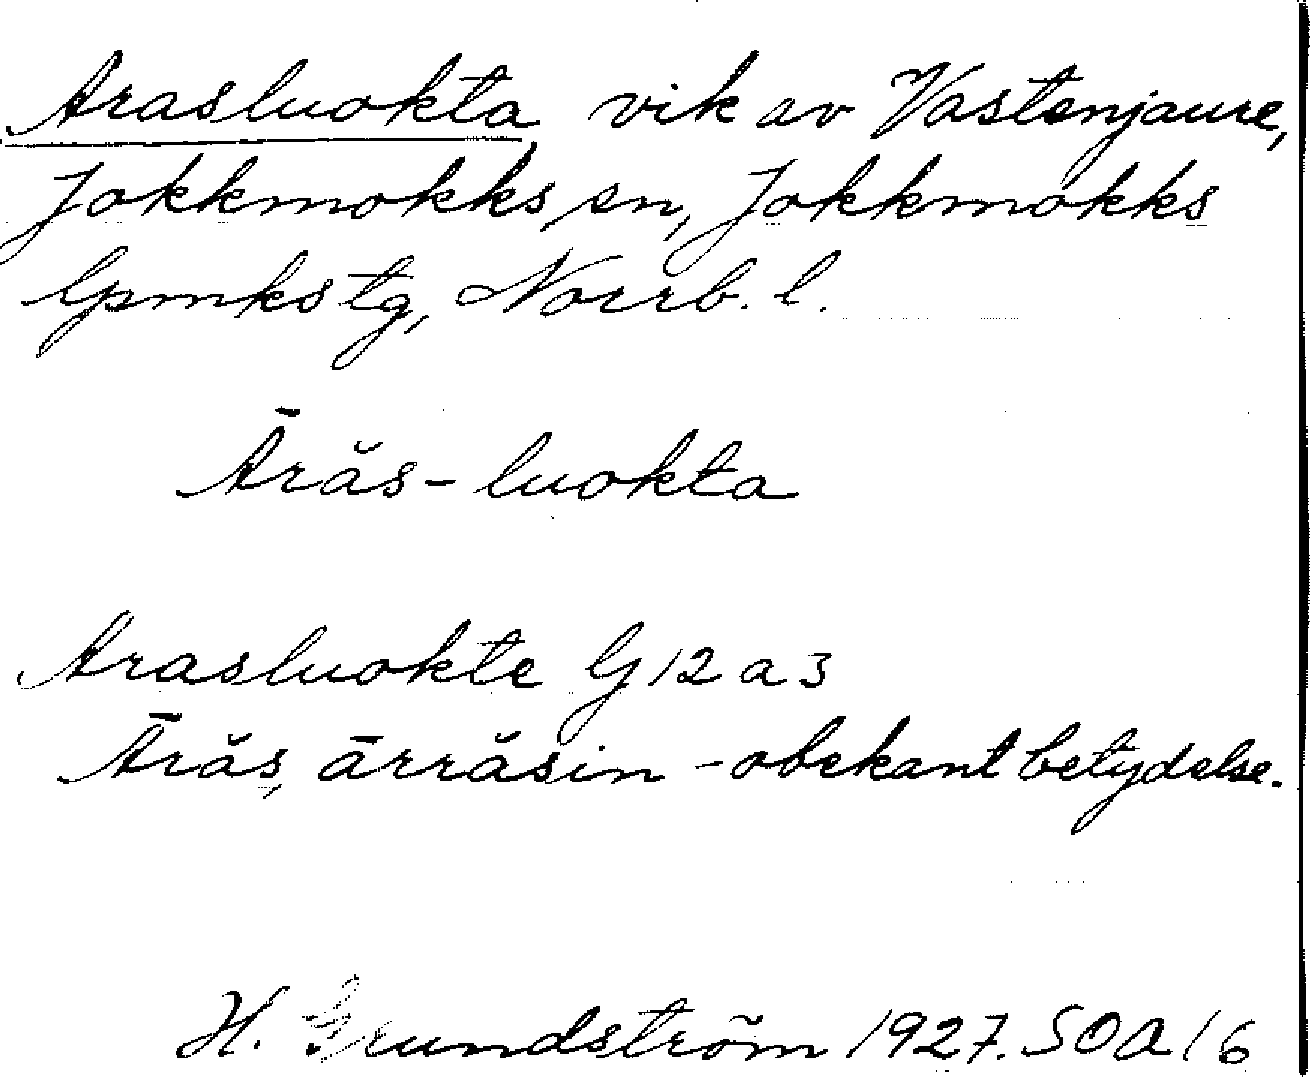 Arasluokta vik av Vastenjaure,
Jokkmokks sn, Jokkmokks
lpmkstg, Norrb. l.
Ārăs-luokta
Arasluokte G 12 a 3
Ārăs, ārrăsin - obekant betydelse.
H. Grundström 1927. SOA 16